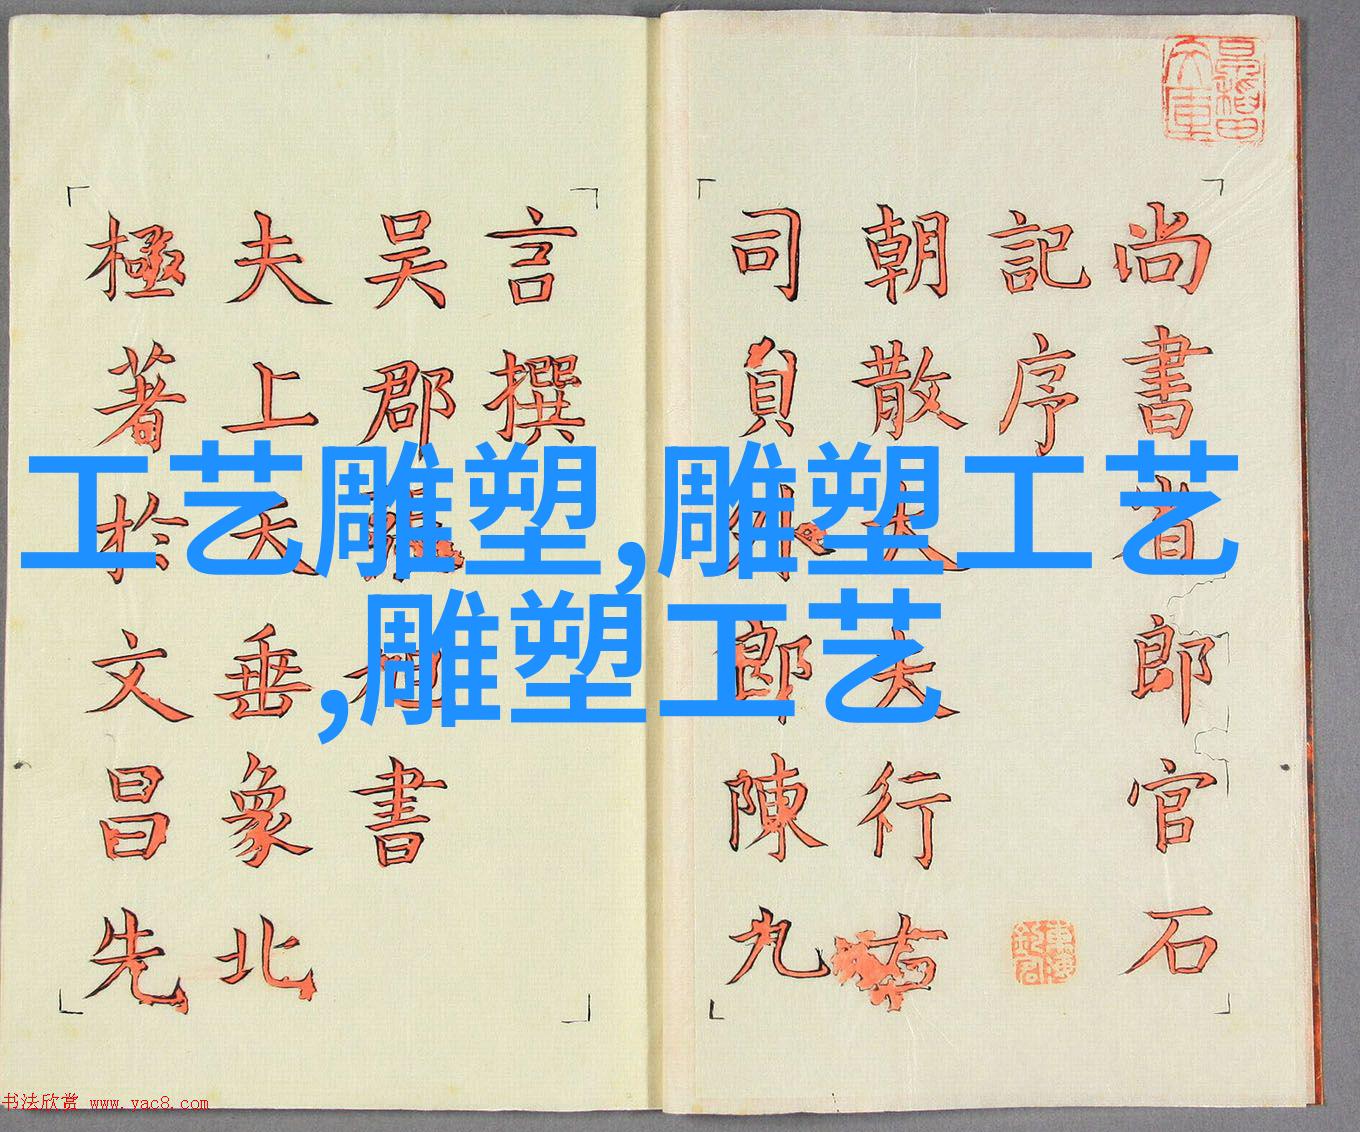 尚書省郎官石
記序
朝散大夫行右
司員外郎陳九
言撰
吳郡張旭書
夫上天垂象北
極著於文昌先
工艺雕塑,雕塑工艺
,雕塑工艺
书法欣赏 www.yac8.com